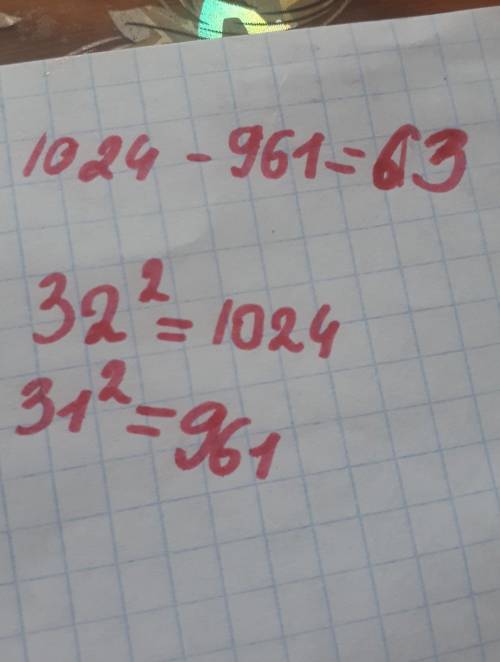 1024 - 961 = 63
32² = 1024
31² = 961